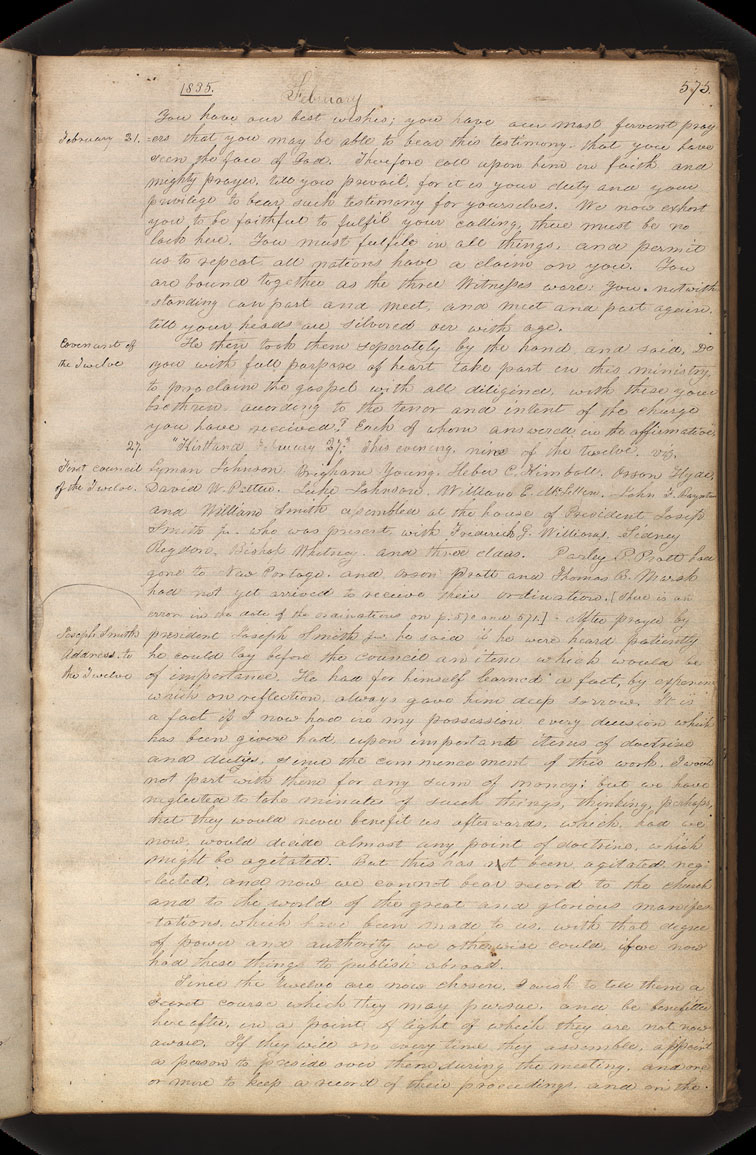 1835.
February
575.
You have our best wishes; you have our most fervent pray-
February 21.
-ers that you may be able to bear this testimony. that you have
seen the face of God. Therefore call upon him in faith and
mighty prayer, till you prevail, for it is your duty and your
privilege to bear such testimony for yourselves. We now exhort
you to be faithful to fulfil your calling, there must be no
lack here. You must fulfil in all things, and permit
us to repeat, all nations have a claim on you. You
are bound together as the three Witnesses were: you. notwith-
-standing can part and meet, and meet and part again,
till your heads are silvered over with age.
Covenant of
the Twelve
He then took them separately by the hand and said, Do
you with full purpose of heart take part in this ministry,
to proclaim the gospel with all diligence, with these your
brethren, according to the tenor and intent of the charge
you have received? Each of whom answered in the affirmative.
27.
"Kirtland February 27." This evening nine of the twelve. viz.
First council
of the Twelve.
Lyman Johnson, Brigham Young, Heber C. Kimball, Orson Hyde,
David W. Patten. Luke Johnson. William E. McLellin. John F. Boynton
and William Smith assembled at the house of President Joseph
Smith jr. who was present, with Frederick G. Williams, Sidney
Rigdon, Bishop Whitney. and three elders. Parley P. Pratt had
gone to New Portage. and Orson Pratt and Thomas B. Marsh
had not yet arrived to receive their ordination. [there is an
error in the date of the ordinations on p: 570 and 571.] After prayer by
Joseph Smith
Address to
the Twelve
president Joseph Smith jr. he said if he were heard patiently
he could lay before the council an item which would be
of importance. He had for himself learned a fact, by experience
which on reflection, always gave him deep sorrow. It is
a fact if I now had in my possession every decision which
has been given had, upon important items of doctrine
and duties, since the commencement of this work. I would
not part with them for any sum of money; but we have
neglected to take minutes of such things, thinking, perhaps,
that they would never benefit us afterwards, which, had we
now, would decide almost any point of doctrine, which
might be agitated. But this has not been agitated neg-
-lected, and now we cannot bear record to the church
and to the world of the great and glorious manifes-
-tations which have been made to us, with that degree
of power and authority we otherwise could, if we now
had these things to publish abroad.
Since the Twelve are now chosen, I wish to tell them a
course which they may pursue, and be benefitted
hereafter, in a point of light of which they are not now
aware. If they will on every time they assemble, appoint
a person to preside over them during the meeting, and one
or more to keep a record of their proceedings, and on the